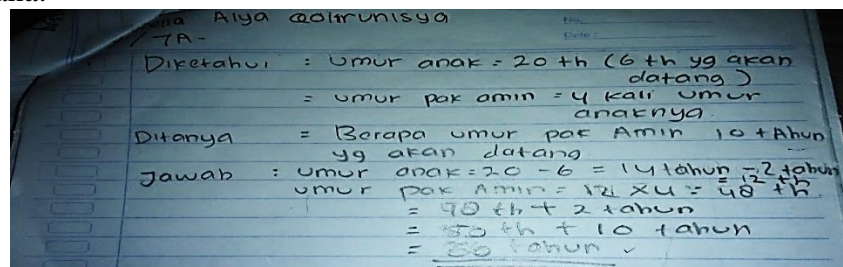 Alya Qolrunisya
No.
7A- Date :
Diketahui : Umur anak = 20 th (6 th yg akan
datang)
= umur pak amin = 4 kali umur
anaknya.
Ditanya = Berapa umur pak Amin 10 tahun
yg akan datang
Jawab : Umur anak = 20 - 6 = 14 tahun - 2 tahun
= 12 th
umur pak Amin = 12 x 4 = 48 th.
= 48 th + 2 tahun
= 50 th + 10 tahun
= 60 tahun